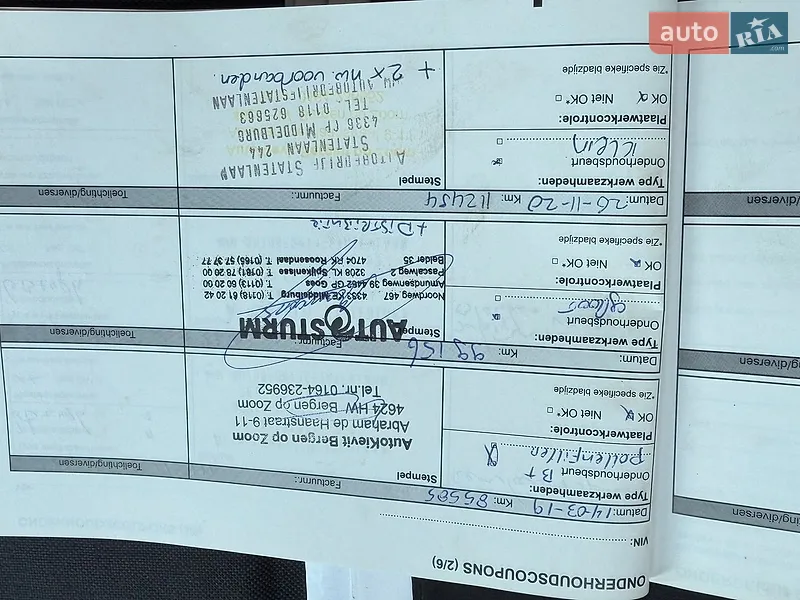 ONDERHOUDSCOUPONS (2/6)
VIN:
Datum: 14-03-19 Km: 85585 Factuurnr.: Toelichting/diversen
Type werkzaamheden:
Onderhoudsbeurt BT
pollenfilter
Plaatwerkcontrole:
OK Niet OK*
*Zie specifieke bladzijde
Stempel
AutoKievit Bergen op Zoom
Abraham de Haanstraat 9-11
4624 HW Bergen op Zoom
Tel.nr. 0164-236952
Datum: Km: 99156 Factuurnr.: Toelichting/diversen
Type werkzaamheden:
Onderhoudsbeurt
Plaatwerkcontrole:
OK Niet OK*
*Zie specifieke bladzijde
Stempel
AUTOSTURM
Noordweg 467 4333 KE Middelburg T. (0118) 61 20 42
Amundsenweg 39 4462 GP Goes T. (0113) 60 60 00
Pascalweg 2 3208 KL Spijkenisse T. (0181) 78 26 00
Belder 35 4704 RK Roosendaal T. (0165) 57 37 77
+ Distributie
Datum: 26-11-20 Km: 112454 Factuurnr.: Toelichting/diversen
Type werkzaamheden:
Onderhoudsbeurt
Klein
Plaatwerkcontrole:
OK Niet OK*
*Zie specifieke bladzijde
Stempel
AUTOBEDRIJF STATENLAAN
STATENLAAN 244
4336 CP MIDDELBURG
TEL. 0118 625663
UW AUTOBEDRIJF STATENLAAN
+ 2x nw. voorbanden.
ng/diversen
ng/diversen
ng/diversen
auto RIA
.com